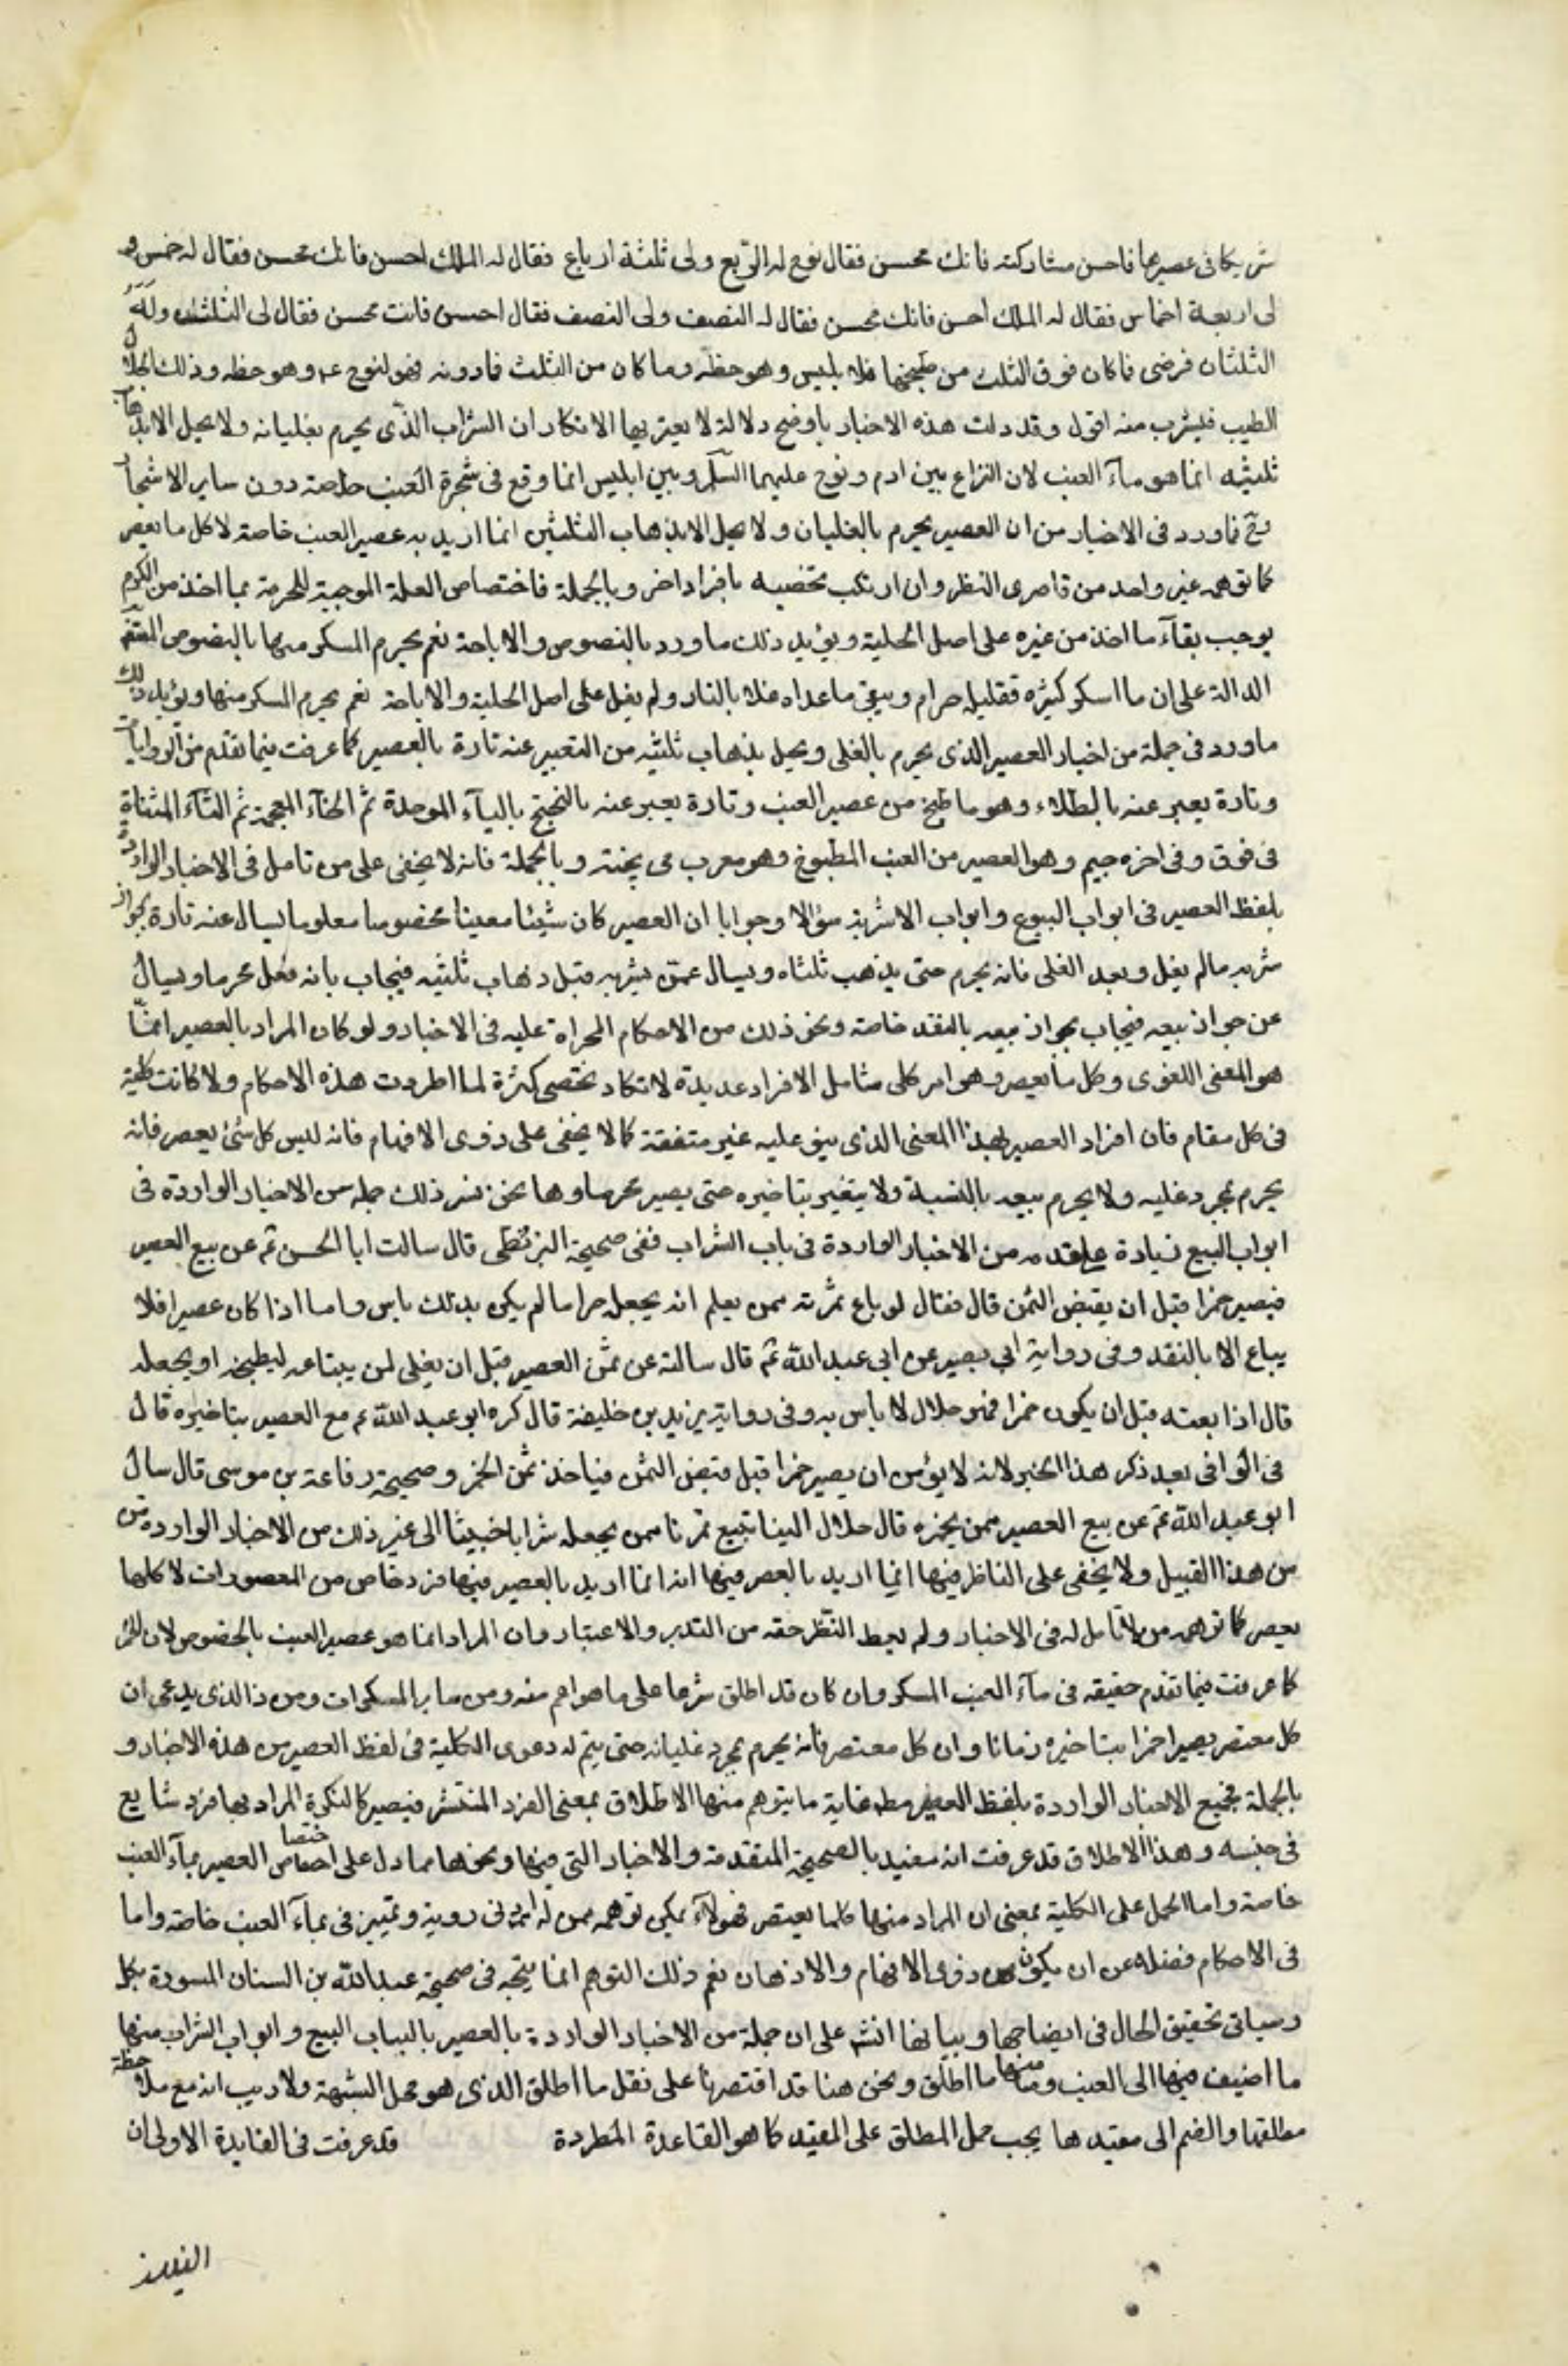 شريكا فى عصيرها فاحسن مشاركته فانك محسن فقال نوع له الربع ولى ثلثة ارباع فقال له الملك احسن فانك محسن فقال له خمس و
لى اربعة اخماس فقال له الملك احسن فانك محسن فقال له النصف ولى النصف فقال احسن فانت محسن فقال لى الثلث وله
الثلثان فرضى فاكان فوق الثلث من طبخها فلابليس وهو حظه وما كان من الثلث فادونه فهو لنوح ع وهو حظه وذلك الحلال
الطيب فليشرب منه اقول وقد دلت هذه الاخبار باوضح دلالة لا يعتريها الانكار ان الشراب الذى يحرم بغليانه ولا يحل الابذهاب
ثلثيه انما هو مآء العنب لان النزاع بين ادم ونوح عليهما السلم وبين ابليس انما وقع فى شجرة العنب خاصة دون ساير الاشجار
وح فاورد فى الاخبار من ان العصير يحرم بالغليان ولا يحل الابذهاب الثلثين انما اريد به عصير العنب خاصة لا كل ما يعصر
كما توهمه غير واحد من قاصرى النظر وان ارتكب تخصيصه بافراد اخر وبالجملة فاختصاص العلة الموجبة للحرمة بما اخذ من الكرم
يوجب بقآء ما اخذ من غيره على اصل الحلية ويؤيد ذلك ما ورد بالنصوص والاباحة نعم يحرم المسكر منها بالنصوص
الدالة على ان ما اسكر كثيره فقليله حرام ويبقى ما عداه غلا بالنار ولم يغل على اصل الحلية والاباحة نعم يحرم المسكر منها ويؤيد ذلك
ما ورد فى جملة من اخبار العصير الذى يحرم بالغلى ويحل بذهاب ثلثيه من التعبير عنه تارة بالعصير كما عرفت فيما تقدم من الروايات
وتارة يعبر عنه بالطلاء وهو ما طبخ من عصير العنب وتارة يعبر عنه بالبختج بالبآء الموحدة ثم الخآء المعجمة ثم التآء المثناة
فى فوق وفى اخره جيم وهو العصير من العنب المطبوخ وهو معرب مى پخته وبالجملة فانه لا يخفى على من تامل فى الاخبار الواردة
بلفظ العصير فى ابواب البيوع وابواب الاشربة سؤالا وجوابا ان العصير كان شيئا معينا مخصوصا معلوما يسال عنه تارة بجواز
شربه مالم يغل وبعد الغلى فانه يحرم حتى يذهب ثلثاه ويسال عمن يشربه قبل ذهاب ثلثيه فيجاب بانه فعل محرما ويسال
عن جواز بيعه فيجاب بجواز بيعه بالنقد خاصة ونحو ذلك من الاحكام المجراة عليه فى الاخبار ولو كان المراد بالعصير انما
هو المعنى اللغوى وكل ما يعصر وهو امر كلى شامل الافراد عديدة لا تكاد تحصى كثرة لما اطردت هذه الاحكام ولا كانت كلية
فى كل مقام فان افراد العصير بهذا المعنى الذى بنى عليه غير متفقة كما لا يخفى على ذوى الافهام فانه ليس كل شئ يعصر فانه
يحرم بمجرد غليه ولا يحرم بيعه بالنسبة ولا يتغير بتاخيره حتى يصير محرما وها نحن نسرد لك جملة من الاخبار الواردة فى
ابواب البيع زيادة على ما قدمه من الاخبار الواردة فى باب الشراب ففى صحيحة البزنطى قال سالت ابا الحسن ع عن بيع العصير
فيصير خمرا قبل ان يقبض الثمن قال فقال لو باع ثمرته ممن يعلم انه يجعله حراما لم يكن بذلك باس واما اذا كان عصيرا فلا
يباع الا بالنقد وفى رواية ابى بصير عن ابى عبد الله ع قال سالته عن ثمن العصير قبل ان يغلى لمن يبتاعه ليطبخه او يجعله
قال اذا بعته قبل ان يكون خمرا فهو حلال لا باس به وفى رواية يزيد بن خليفة قال كره ابو عبد الله ع بيع العصير بتاخيره قال
فى الوافى بعد ذكر هذا الخبر لانه لا يؤمن ان يصير خمرا قبل قبض الثمن فياخذ ثمن الخمر وصحيحة رفاعة بن موسى قال سال
ابو عبد الله ع عن بيع العصير ممن يخمره قال حلال السنا نبيع تمرنا ممن يجعله شرابا خبيثا الى غير ذلك من الاخبار الواردة من
من هذا القبيل ولا يخفى على الناظر فيها انما اريد بالعصر فيها انه انما اريد بالعصير فيها فرد خاص من المعصورات لا كلها
يعصر كما توهمه من لا تامل له فى الاخبار ولم يعط النظر حقه من التدبر والاعتبار وان المراد انما هو عصير العنب بالخصوص لان الخمر
كما عرفت فيما تقدم حقيقه فى مآء العنب المسكر وان كان قد اطلق شرعا على ما هو اعم منه ومن ساير المسكرات ومن ذا الذى يدعى ان
كل معتصر يصير خمرا بتاخيره زمانا وان كل معتصر فانه يحرم بمجرد غليانه حتى يتم له دعوى الكلية فى لفظ العصير من هذه الاخبار و
بالجملة فجميع الاخبار الواردة بلفظ العصير مط غاية ما يتوهم منها الاطلاق بمعنى الفرد المنتشر فيصير كالنكرة المراد بها فرد شايع
فى جنسه وهذا الاطلاق قد عرفت انه مقيد بالصحيحة المتقدمة والاخبار التى فيها ونحوها مما دل على اختصاص العصير بمآء العنب
خاصة واما الحمل على الكلية بمعنى ان المراد منها كلما يعتصر فهولاء يمكن توهمه ممن له ادنى روية وتمييز فى بمآء العنب خاصة واما
فى الاحكام فضلا عن ان يكون من ذوى الافهام والاذهان نعم ذلك التوهم انما يتجه فى صحيحة عبد الله بن السنان المسورة بكل
وسياتى تحقيق الحال فى ايضاحها وبيانها انش على ان جملة من الاخبار الواردة بالعصير بالباب البيع وابواب الشراب منها
ما اضيف فيها الى العنب ومنها ما اطلق ونحن هنا قد اقتصرنا على نقل ما اطلق الذى هو محل الشبهة ولا ريب انه مع ملاحظة
مطلقها والضم الى مقيدها يجب حمل المطلق على المقيد كما هو القاعدة المطردة قد عرفت فى الفايدة الاولى ان